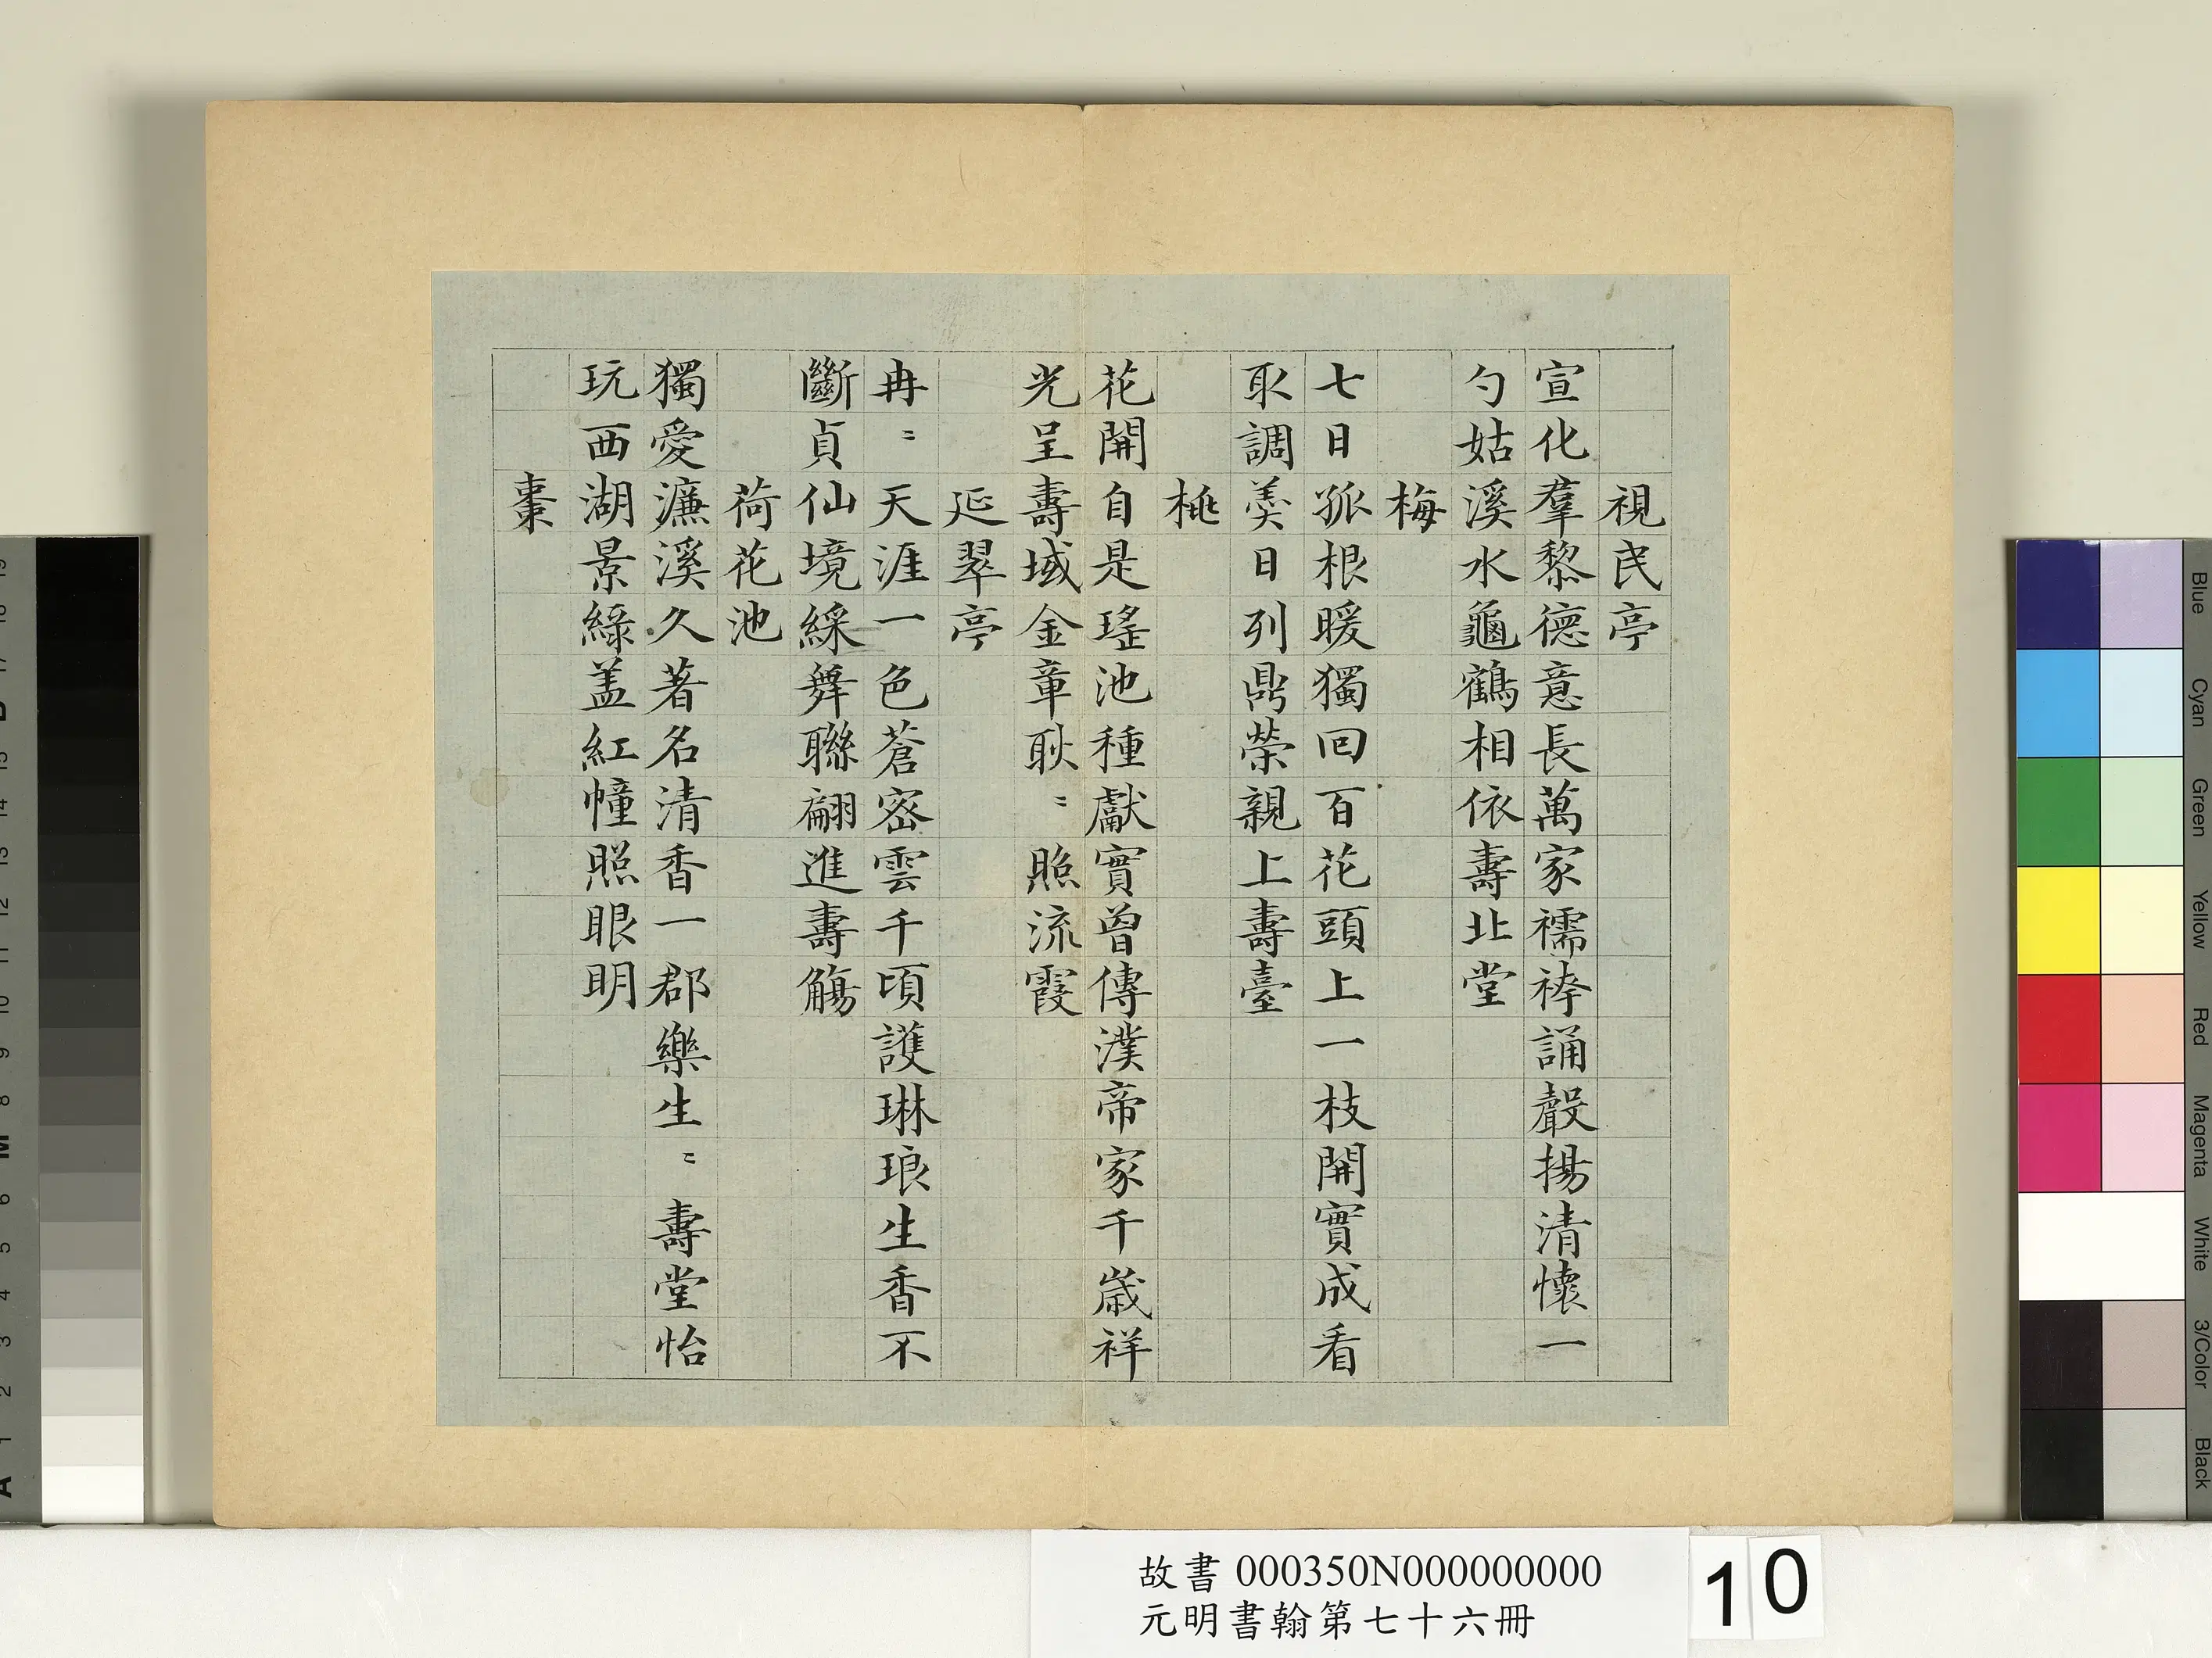 視民亭
宣化羣黎德意長萬家襦袴誦聲揚清懷一
勺姑溪水龜鶴相依壽北堂
梅
七日孤根暖獨回百花頭上一枝開實成看
取調羮日列鼎榮親上壽臺
桃
花開自是瑤池種獻實曾傳漢帝家千歲祥
光呈壽域金章耿〻照流霞
延翠亭
冉〻天涯一色蒼密雲千頃護琳琅生香不
斷貞仙境綵舞聯翩進壽觴
荷花池
獨愛濂溪久著名清香一郡樂生〻壽堂怡
玩西湖景綠盖紅幢照眼明
棗
故書 000350N000000000
元明書翰第七十六冊
10
Blue
Cyan
Green
Yellow
Red
Magenta
White
3/Color
Black
19
17
15
14
13
12
11
10
9
8
M
6
5
4
3
2
1
A